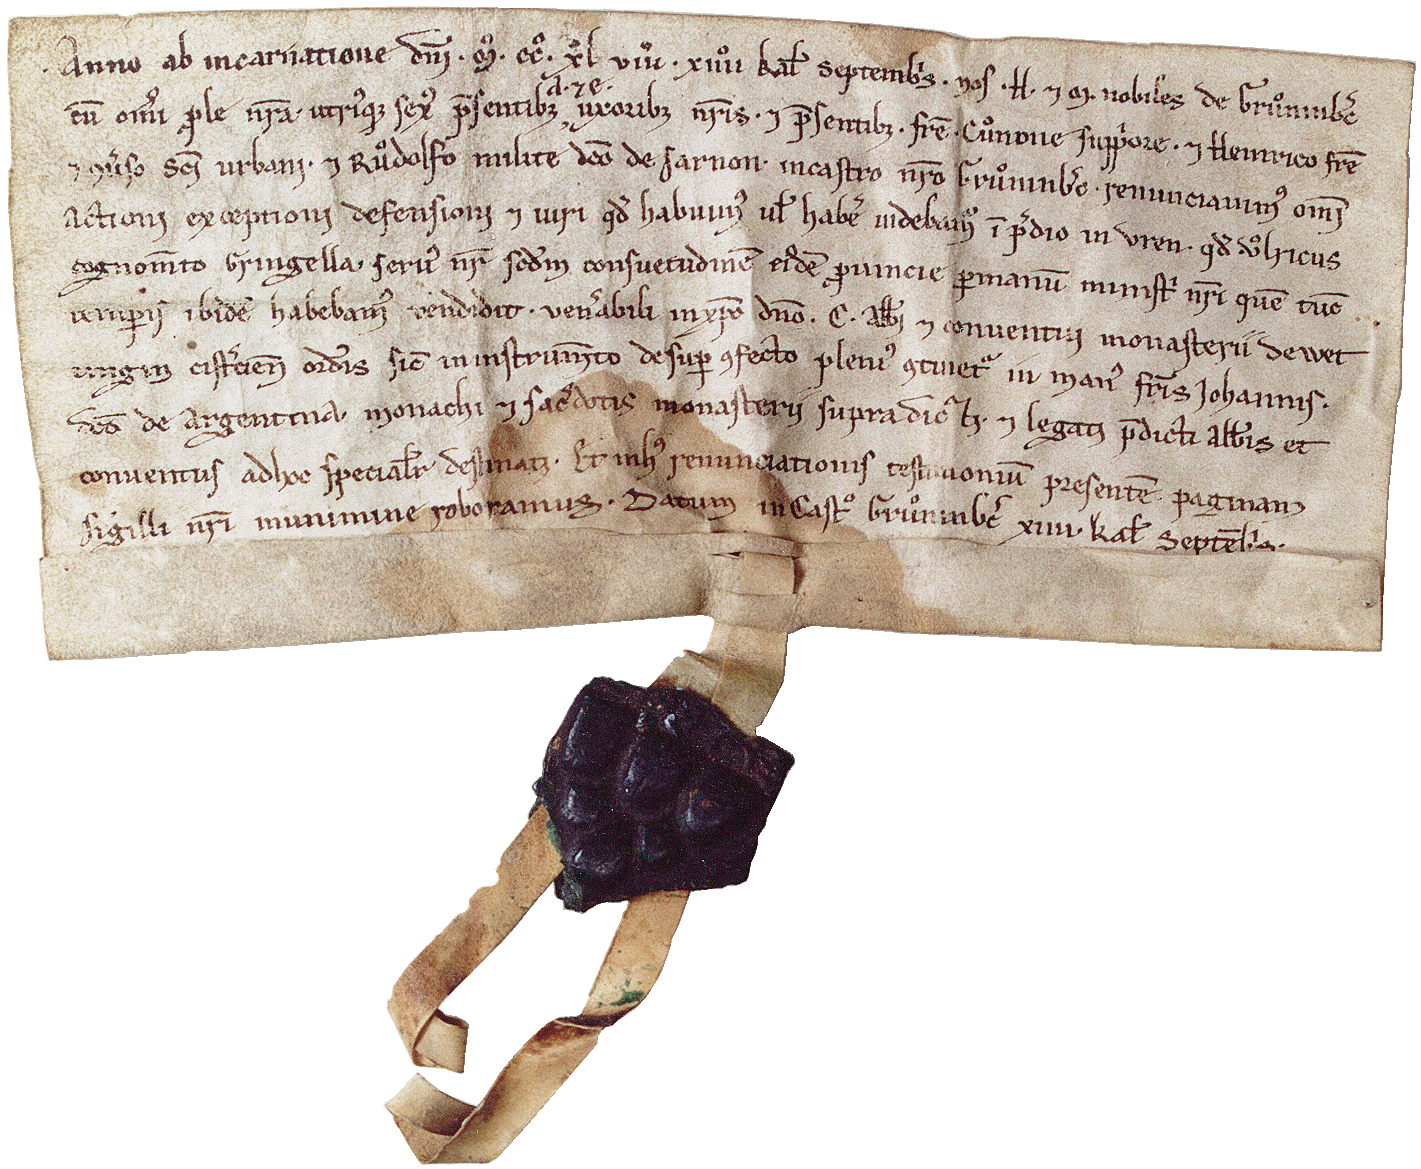 Anno ab incarnatione dnī · Mº · ccº · xͦl viiiͦ · xiiii kal̄ Septembr̄s · Nos · H · ⁊ Oꝛ nobiles de Gruͦninbc̄
cū om̄i ꝓle nr̄a utriꝰqꝫ sexꝰ p̄sentibꝫ A · ⁊ E · uxoribꝫ nr̄is · ⁊ p̄sentibꝫ · fr̄e · Cuͦnone suppͥore · ⁊ Heinrico fr̄e
⁊ sc̄i urbani · ⁊ Ruͦdolfo milite dc̄o de Jarnon · in castro nr̄o Gruͦninbc̄ · renunciauimꝰ om̄i
Actioni exceptioni defensioni ⁊ iuri qd̄ habuimꝰ ul̄ habe̅ uidebamꝰ ī pͣdio in vren · qd̄ Vͦlricus
cognom̄to Gringella · seruꝰ nr̄ scd̄m consuetudinē eiꝰdē ꝓuincie ꝑ manū ministͥ nr̄i quē tūc
ibidē habebamꝰ vendidit · ven̄abili in xp̄o dn̄o · C · Abb̄i ⁊ conuentui monasterii de wet
ungin cist̄cien̄ ord̄is sic̄ in instrum̄to desuꝑ ꝯfecto pleniꝰ ꝯtinetᷣ in manꝰ fr̄is Johannis ·
dc̄i de Argentina · monachi ⁊ sac̄dotis monasterii supradicti · ⁊ legati p̄dicti abb̄is et
conuentus ad hoc special̄r destinati · Et in hꝰ renunciationis testimoniū presentē paginam
sigilli nr̄i munimine roboramus · Datum in Castͦ Gruͦninbc̄ xiiii · kal̄ Septēbris ·